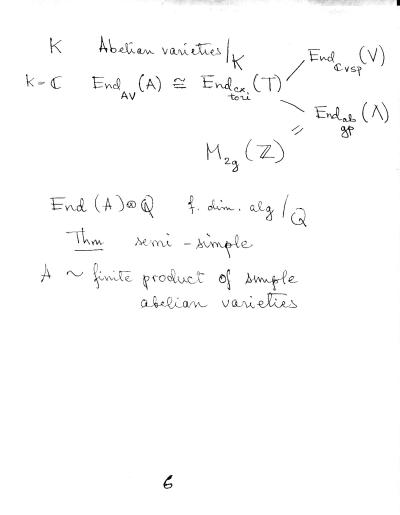 K Abelian varieties/K
K = ℂ End_AV(A) ≅ End_cx. tori(T) End_ℂvsp(V)
End_ab gp(Λ)
M_2g(ℤ) =
End(A)⊗ℚ f. dim. alg/ℚ
Thm semi-simple
A ~ finite product of simple
abelian varieties
6